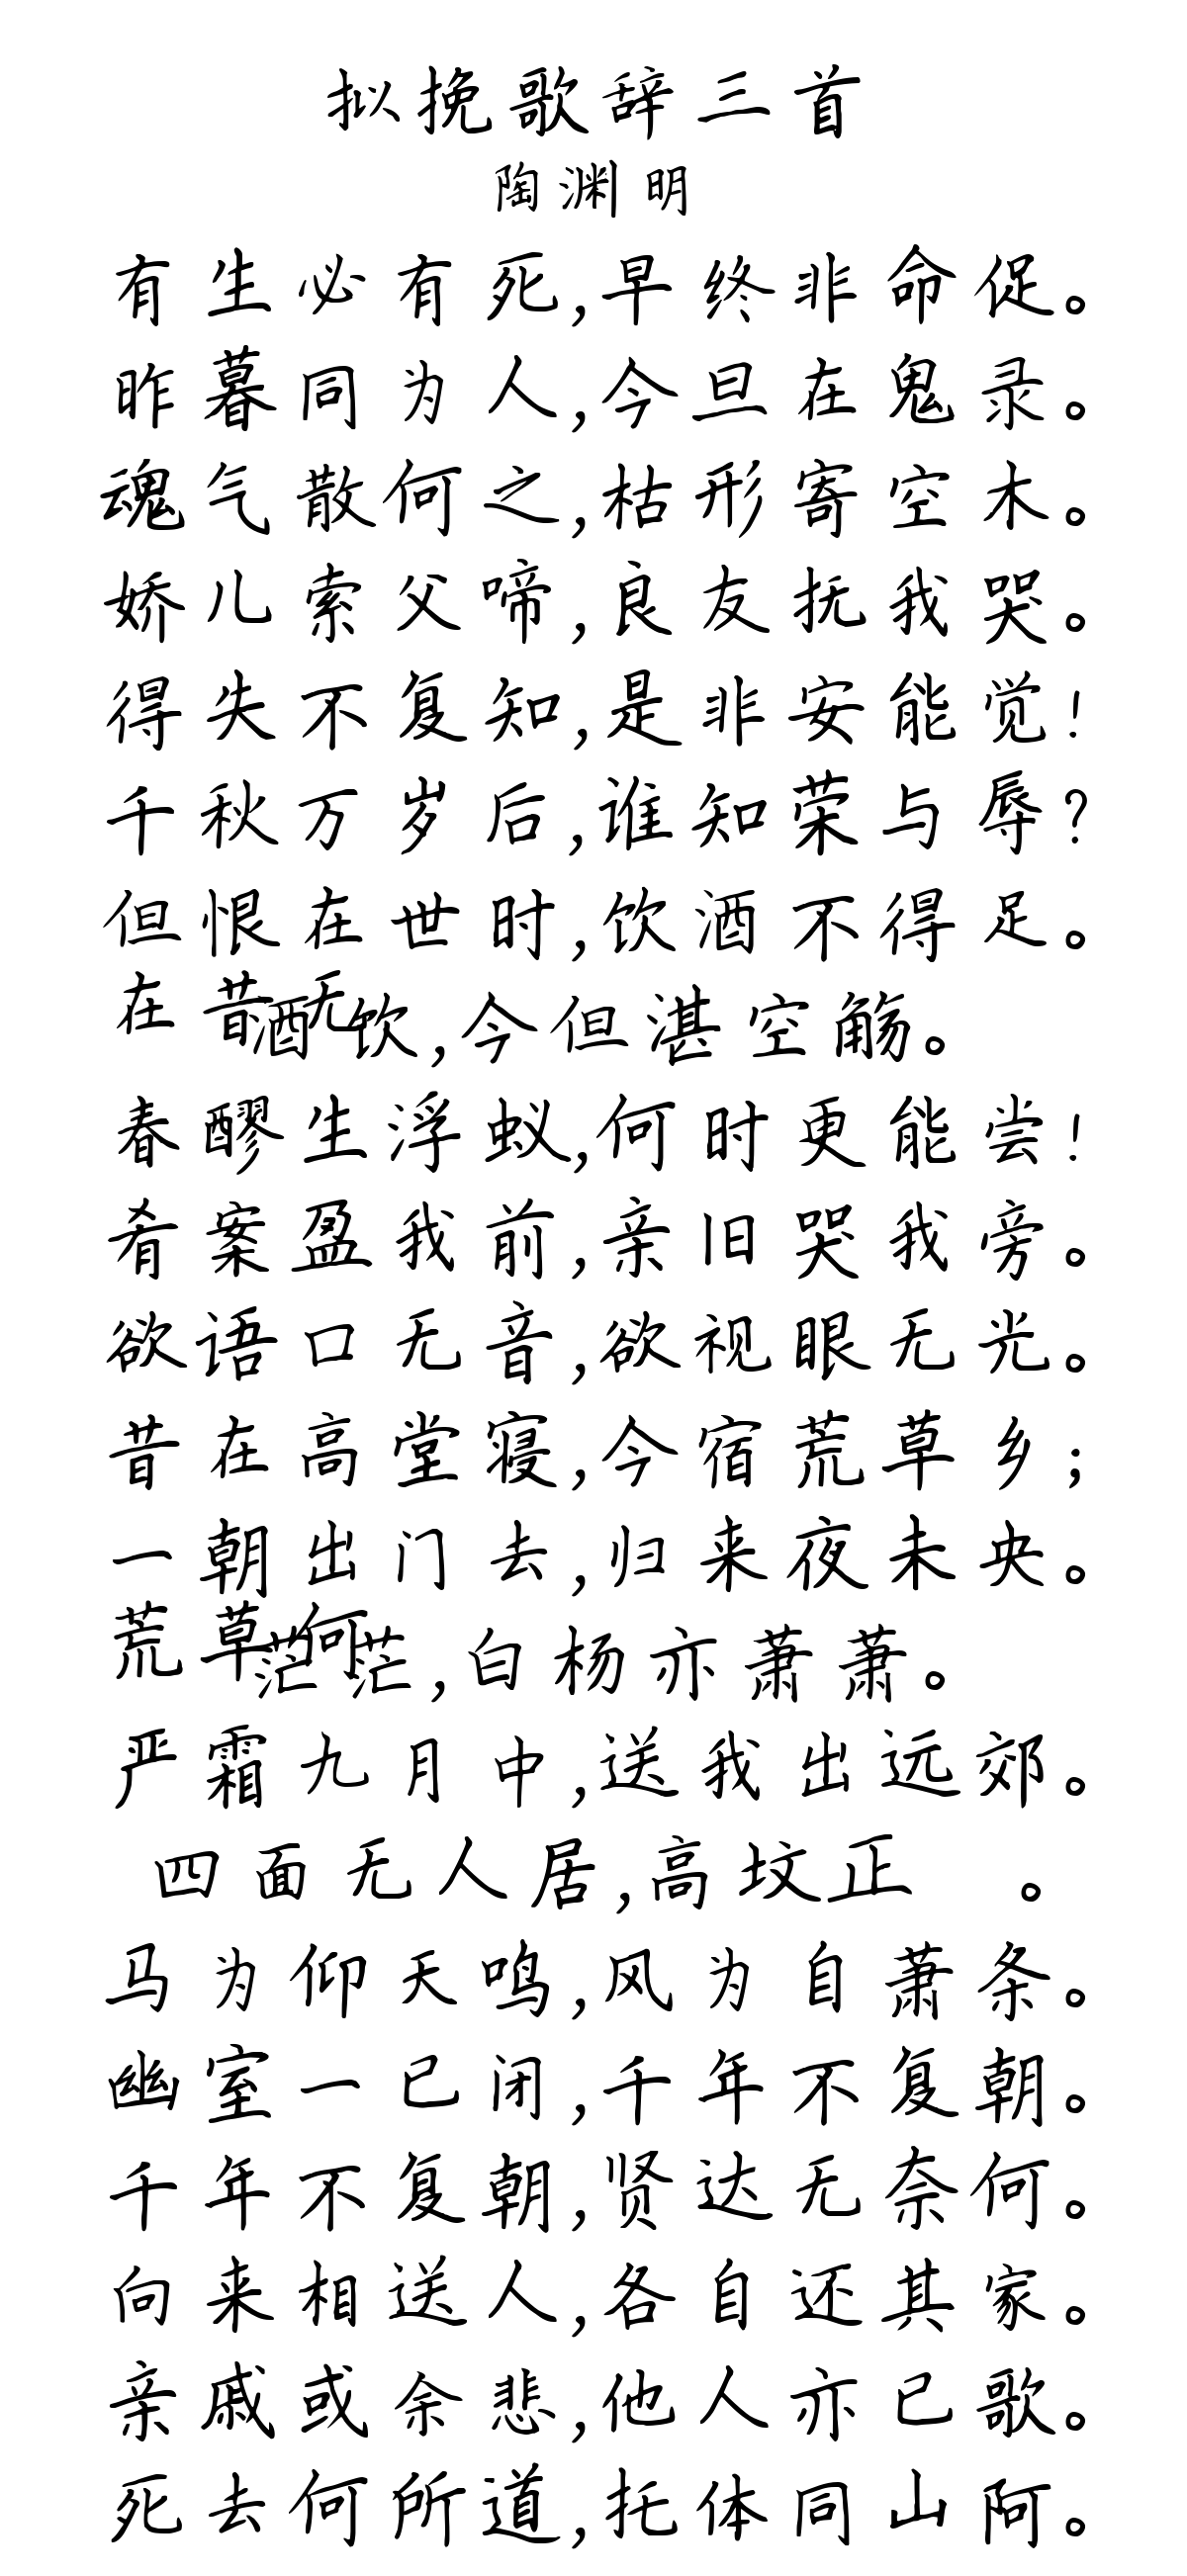 拟挽歌辞三首
陶渊明
有生必有死,早终非命促。
昨暮同为人,今旦在鬼录。
魂气散何之,枯形寄空木。
娇儿索父啼,良友抚我哭。
得失不复知,是非安能觉!
千秋万岁后,谁知荣与辱?
但恨在世时,饮酒不得足。
在昔无酒饮,今但湛空觞。
春醪生浮蚁,何时更能尝!
肴案盈我前,亲旧哭我旁。
欲语口无音,欲视眼无光。
昔在高堂寝,今宿荒草乡;
一朝出门去,归来夜未央。
荒草何茫茫,白杨亦萧萧。
严霜九月中,送我出远郊。
四面无人居,高坟正 。
马为仰天鸣,风为自萧条。
幽室一已闭,千年不复朝。
千年不复朝,贤达无奈何。
向来相送人,各自还其家。
亲戚或余悲,他人亦已歌。
死去何所道,托体同山阿。